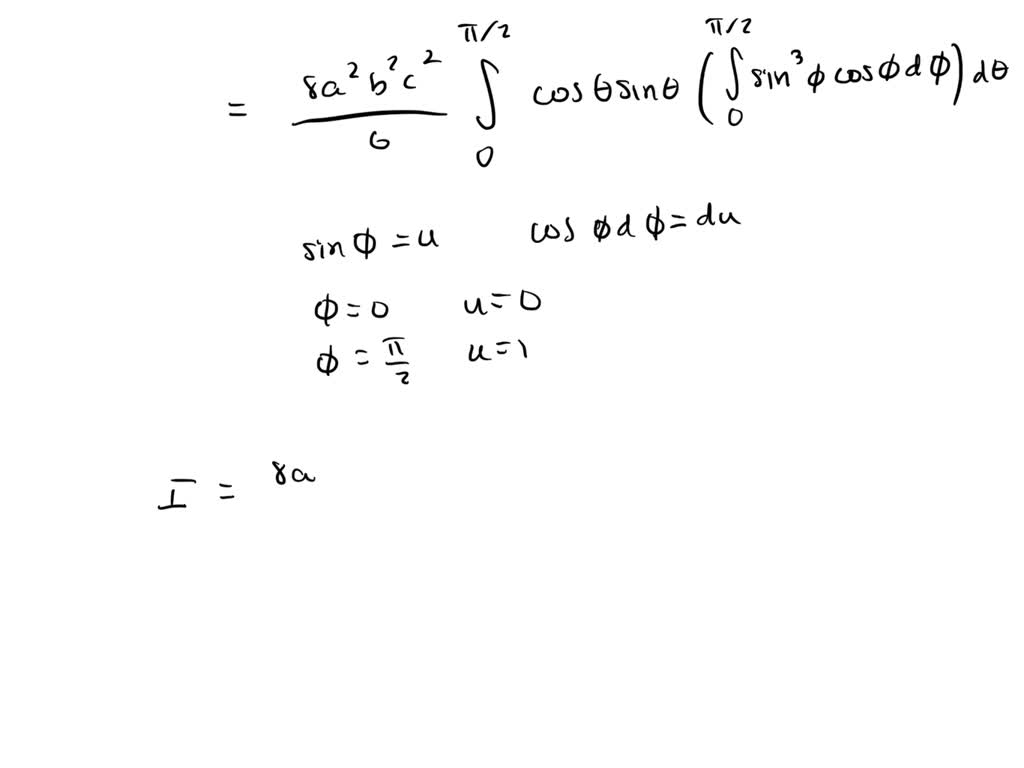 = 8a²b²c²/6 ∫₀^{π/2} cos θ sin θ (∫₀^{π/2} sin³ φ cos φ d φ) dθ
sin φ = u cos φ d φ = du
φ = 0 u = 0
φ = π/2 u = 1
I = 8a